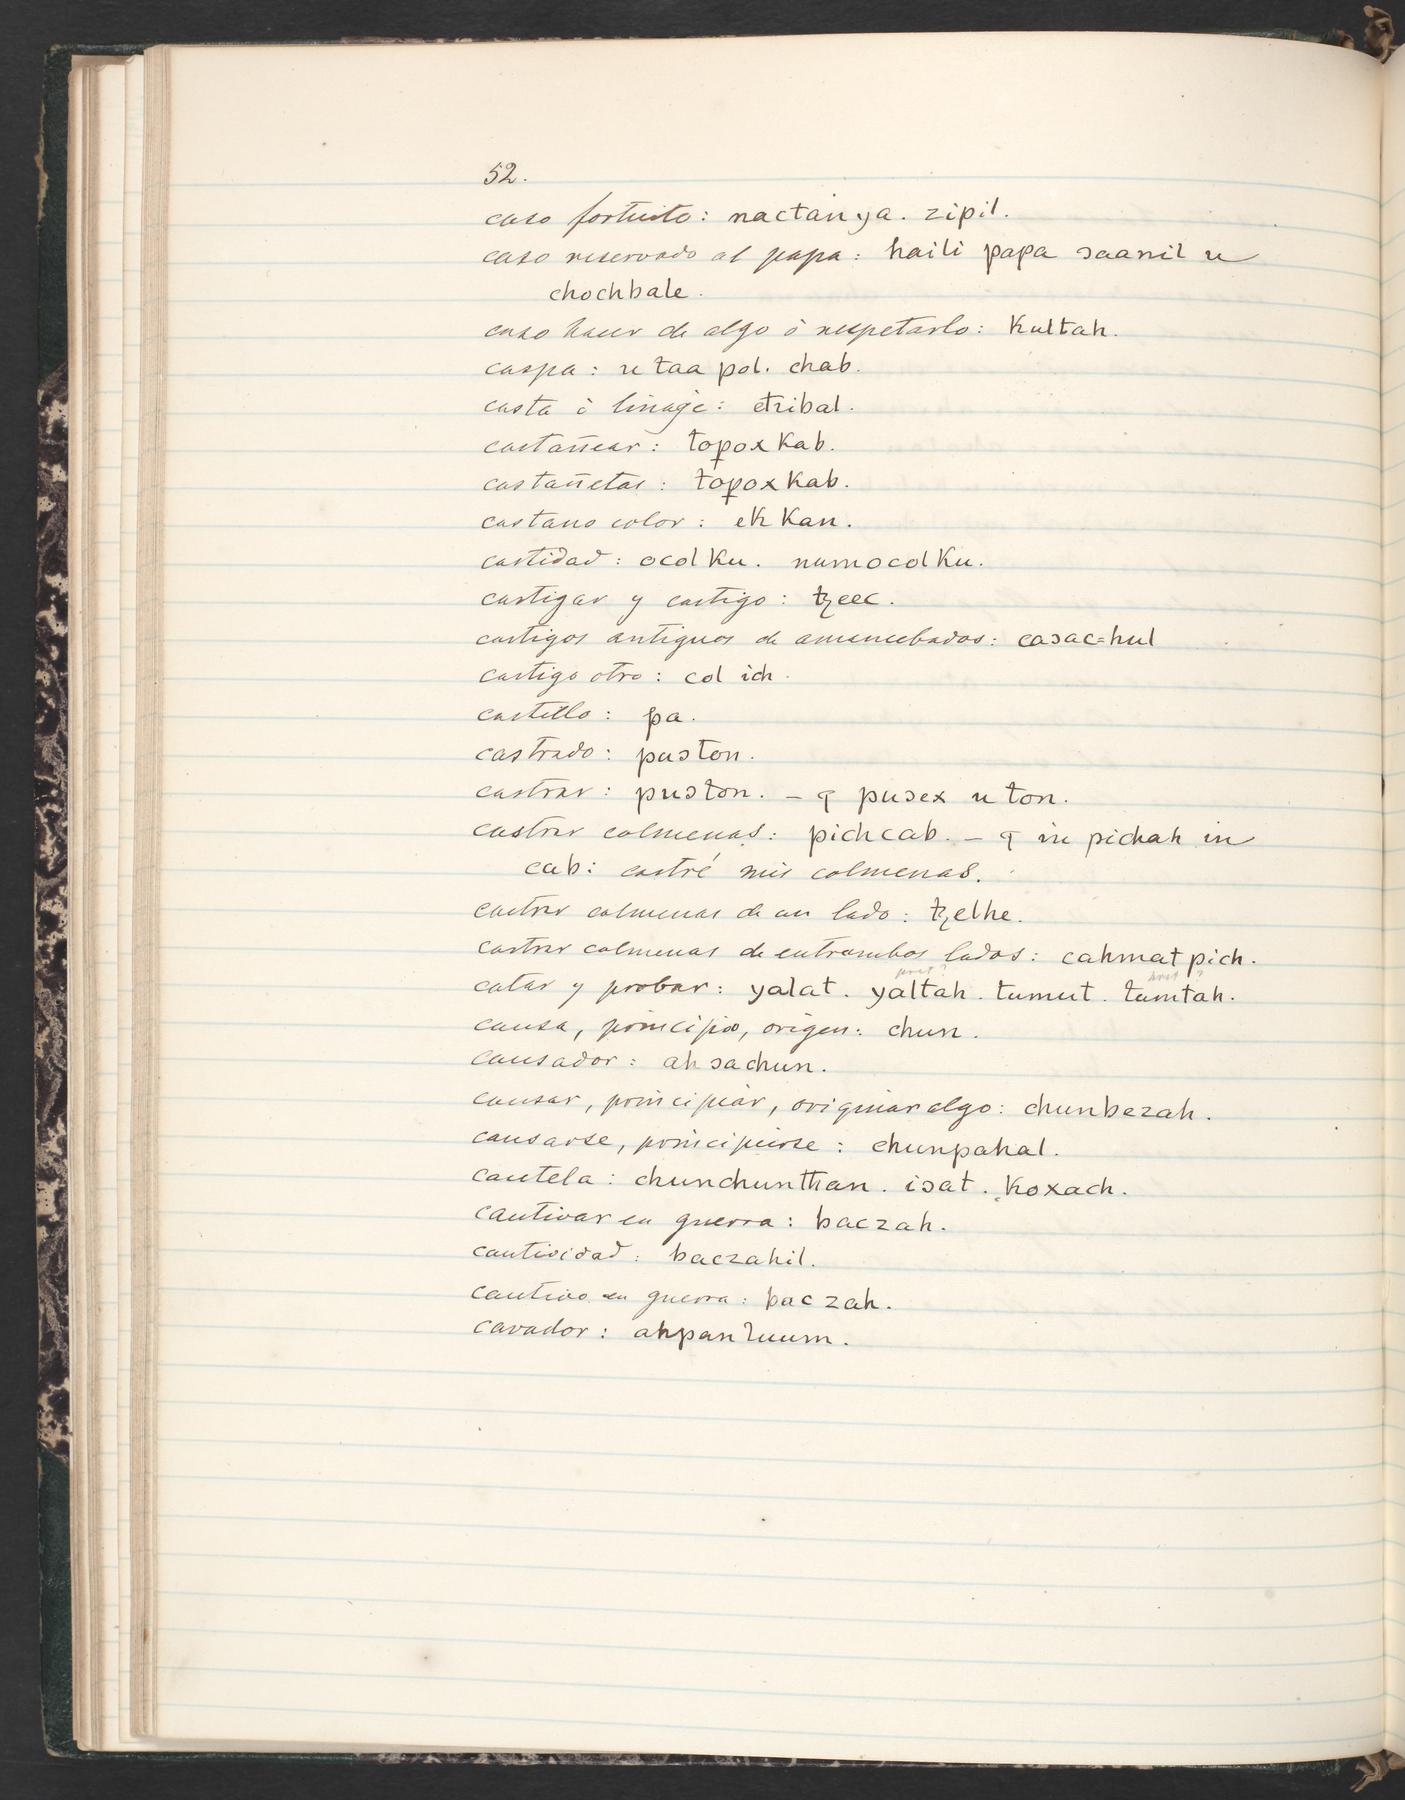 52.
caso fortuito: nactan ya. zipil.
caso reservado al papa: haili papa ɔaanil u
chochbale.
caso hacer de algo ò respetarlo: kultah.
caspa: u taa pol. chab.
casta ò linage: etzibal.
castañear: topox kab.
castañetas: topox kab.
castano color: ek kan.
castidad: ocol ku. numocol ku.
castigar y castigo: tzeec.
castigos antiguos de amancebados: caɔac=hul
castigo otro: col ich.
castillo: pa.
castrado: puɔton.
castrar: puɔton. – ꟼ puɔex u ton.
castrar colmenas: pichcab. – ꟼ in pichah in
cab: castré mis colmenas.
castrar colmenas de un lado: tzelhe.
castrar colmenas de entrambos lados: cahmat pich.
catar y probar: yalat. yaltah. tumut. tumtah.
causa, principio, origen: chun.
causador: ah ɔachun.
causar, principiar, originar algo: chunbezah.
causarse, principiarse: chunpahal.
cautela: chunchunthan. iɔat. koxach.
cautivar en guerra: baczah.
cautividad: baczahil.
cautivo en guerra: baczah.
cavador: ahpanluum.